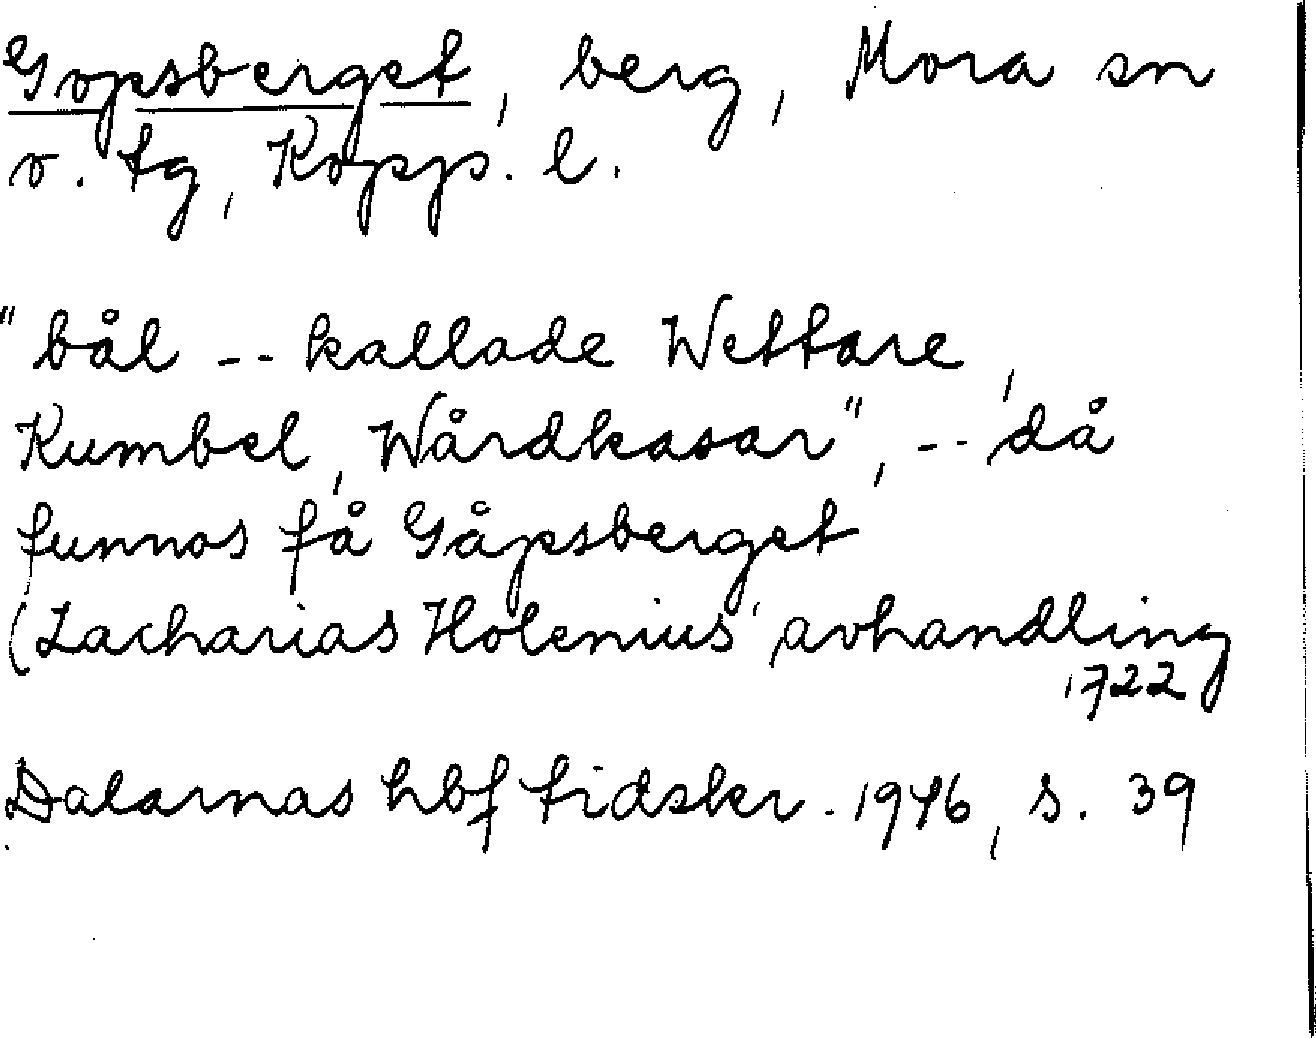 Gopsberget, berg, Mora sn
o. tg, Kopp. l.
"bål -- kallade Wettare,
Kumbel, Wårdkasar", -- då
funnos på Gåpsberget
(Zacharias Holenius' avhandling
1722
Dalarnas hbf tidskr. 1946, s. 39